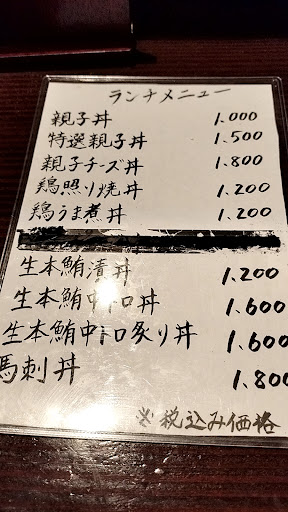 ランチメニュー
親子丼 1.000
特選親子丼 1.500
親子チーズ丼 1.800
鶏照り焼丼 1.200
鶏うま煮丼 1.200
生本鮪漬丼 1.200
生本鮪中トロ丼 1.600
生本鮪中トロ炙り丼 1.600
馬刺丼 1.800
※税込み価格